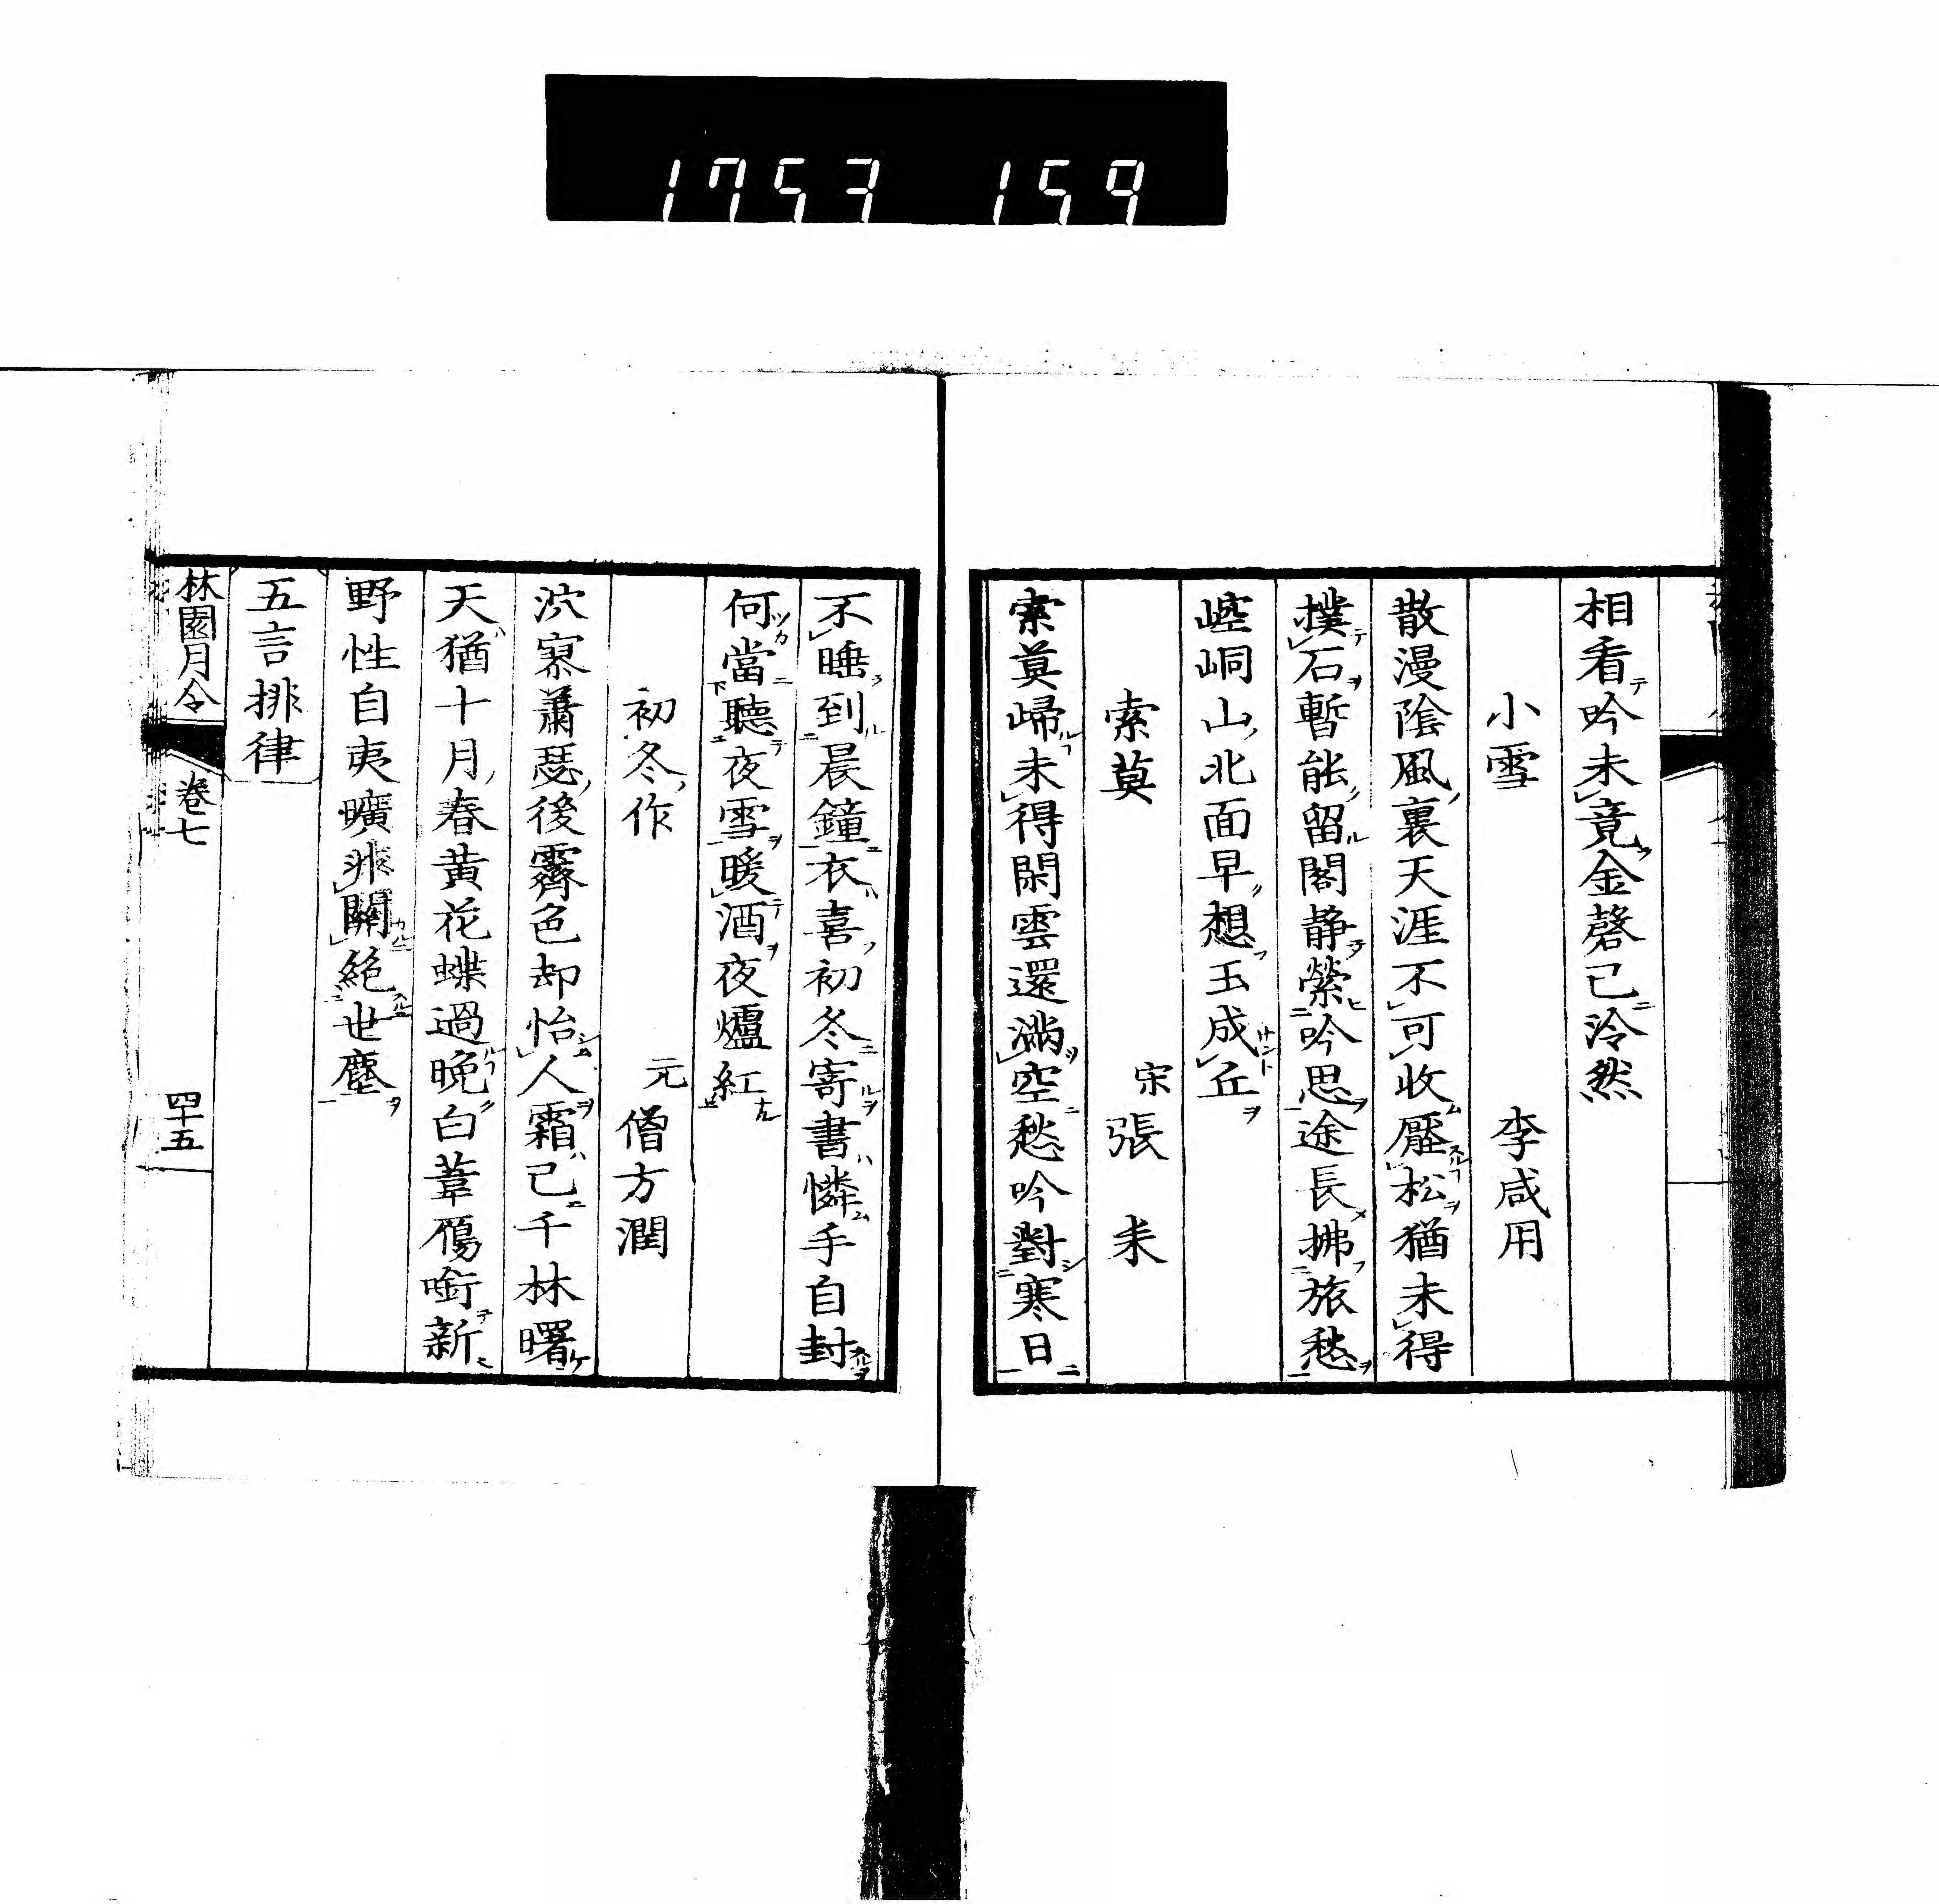 1753 159
相看吟未竟金磬已泠然
小雪 李咸用
散漫陰風裏天涯不可收壓松猶未得
撲石暫能留閣静縈吟思途長拂旅愁
崆峒山北面早想玉成丘
索莫 宋 張耒
索莫歸未得閑雲還滿空愁吟對寒日
不睡到晨鐘衣喜初冬寄書憐手自封
何當聽夜雪暖酒夜爐紅
初冬作 元 僧方潤
泬寥蕭瑟後霽色却怡人霜已千林曙
天猶十月春黄花蝶過晚白葦鴈銜新
野性自夷曠非關絶世塵
五言排律
林園月令 卷七 四十五